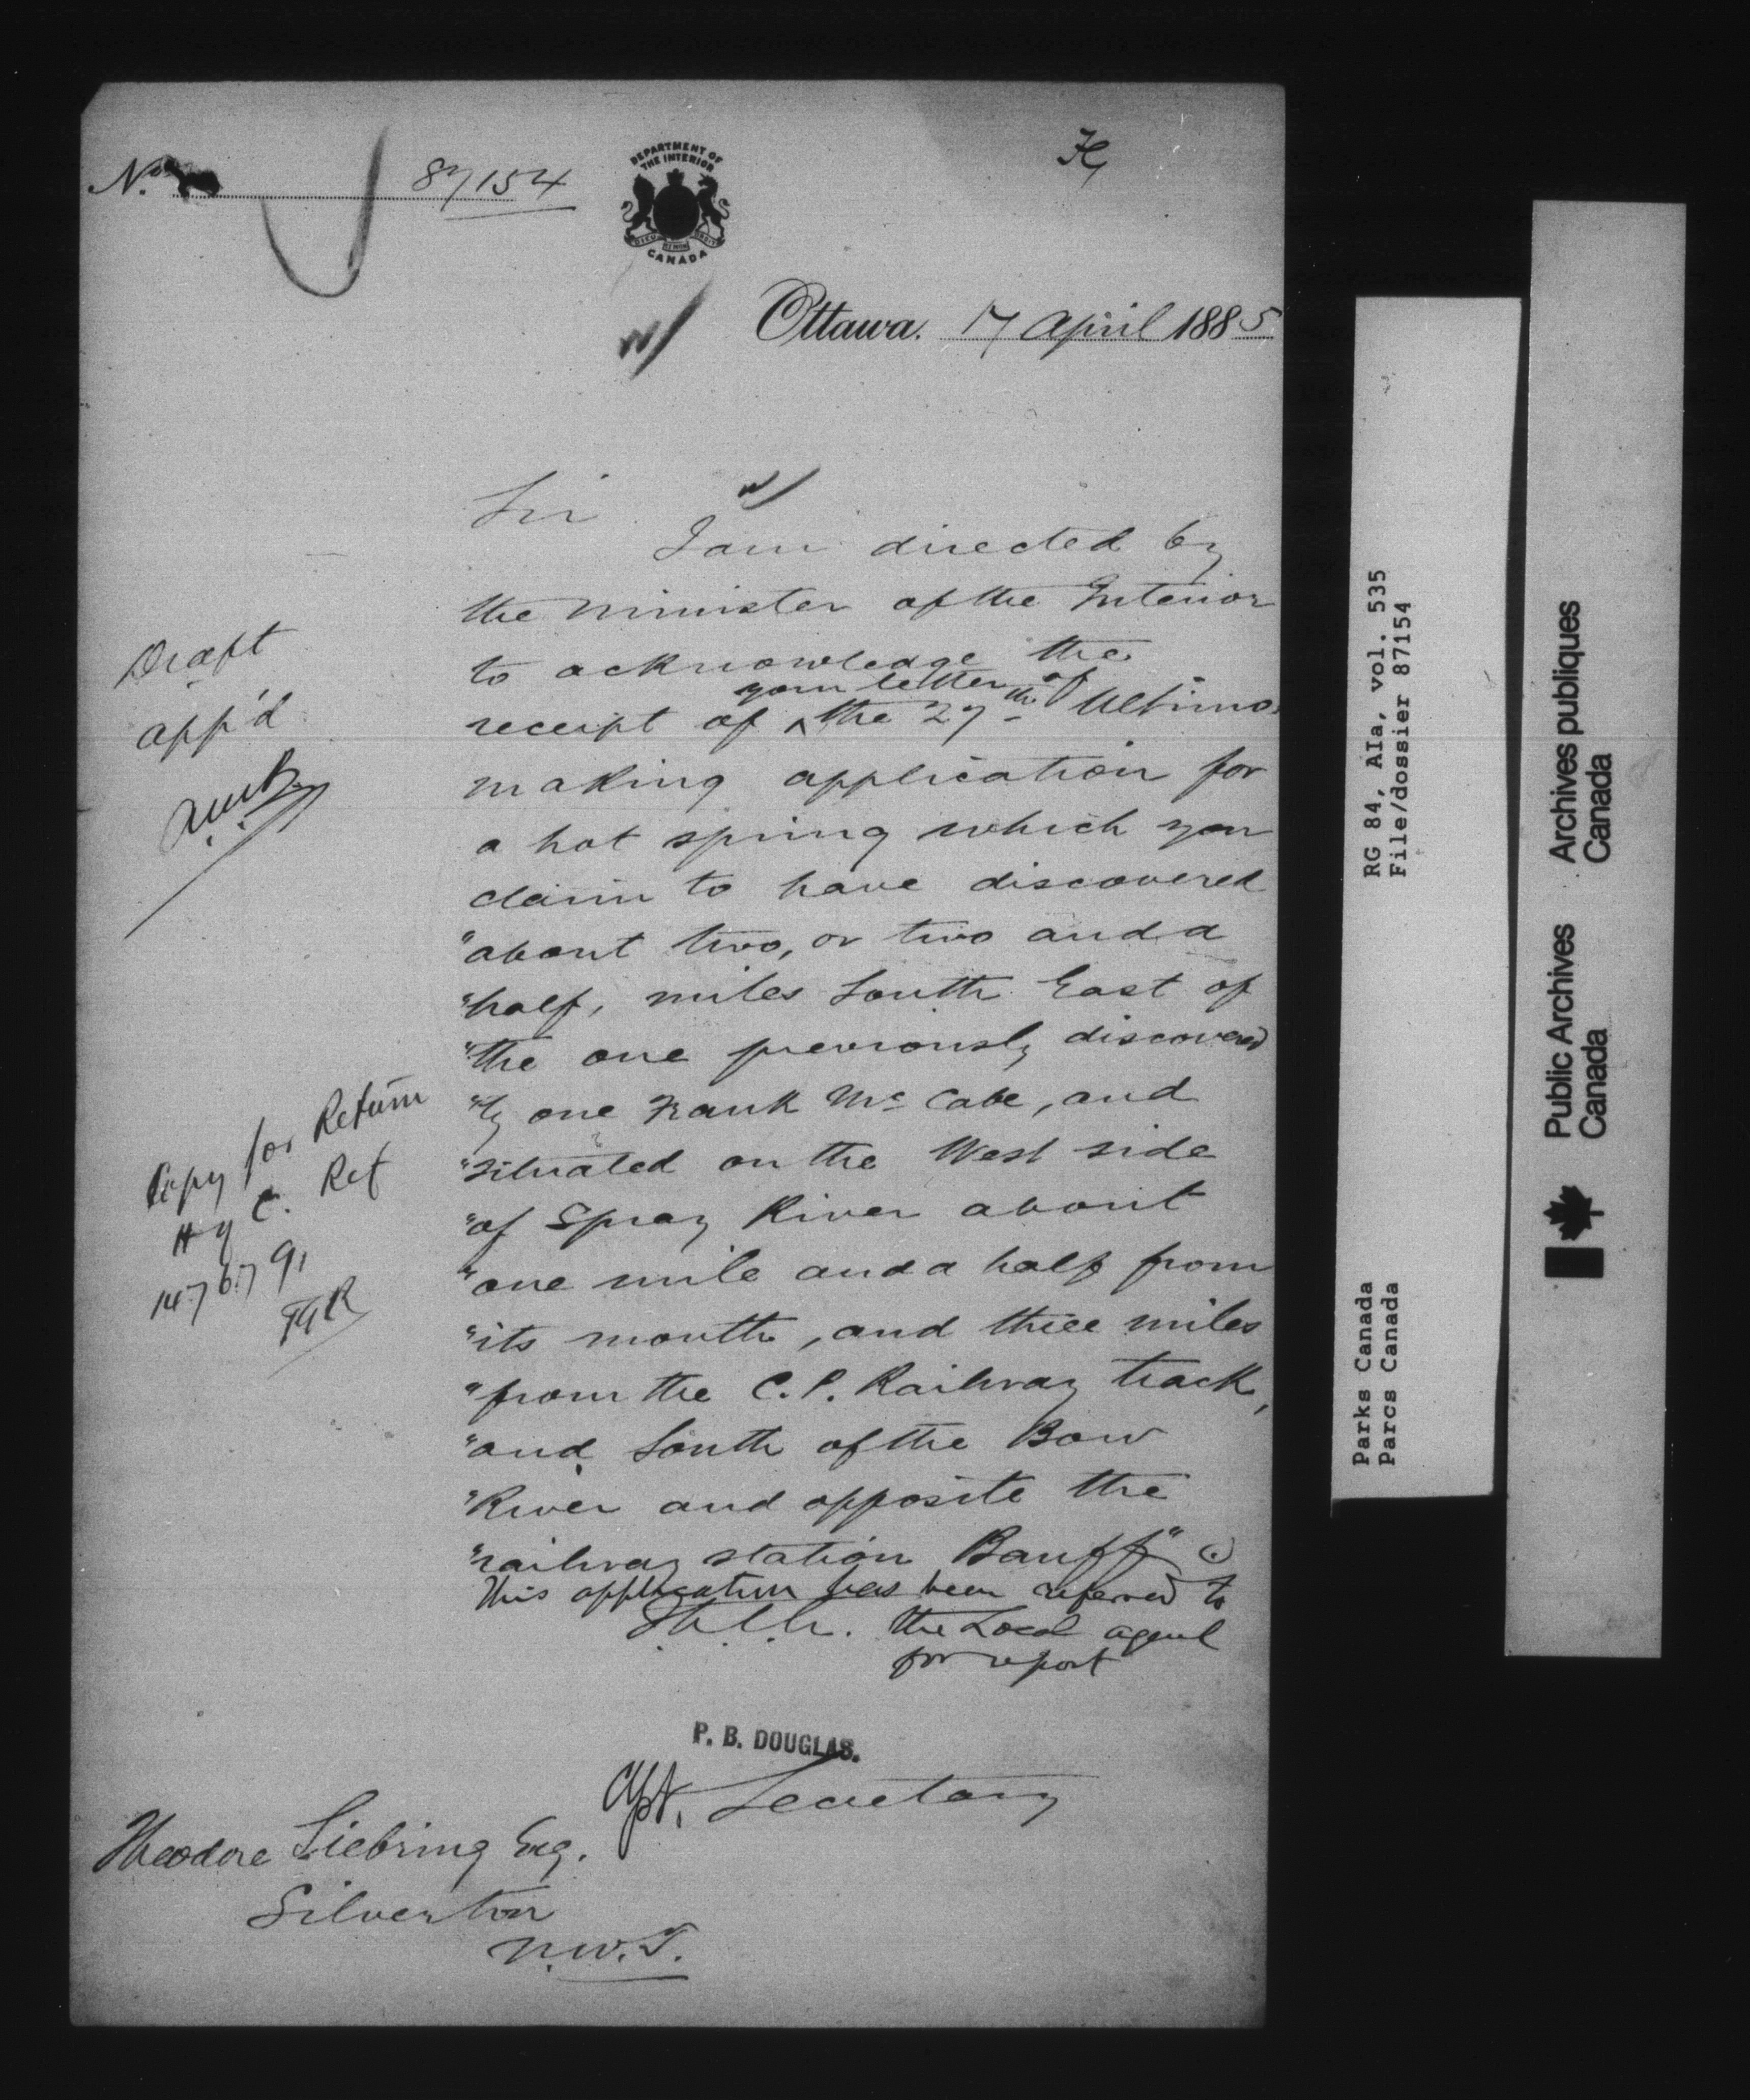 No. 87154
DEPARTMENT OF
THE INTERIOR
CANADA
Ottawa. 17 April 1885
Sir
I am directed by
the Minister of the Interior
to acknowledge the
receipt of your letter of the 27th Ultimo
making application for
a hot spring which you
claim to have discovered
"about two, or two and a
"half, miles South East of
"the one previously discovered
"by one Frank McCabe, and
"situated on the West side
"of Spray River about
"one mile and a half from
"its mouth, and three miles
"from the C.P. Railway track,
"and South of the Bow
"River and opposite the
"railway station Banff"
This application has been referred to
the Local agent
for report
P. B. DOUGLAS.
Asst. Secretary
Theodore Siebring Esq.
Silverton
N.W.T.
Draft
app'd
AMB
Copy for Return
H of C. Ref
147679
RG 84, AIa, vol. 535
File/dossier 87154
Parks Canada
Parcs Canada
Public Archives
Canada
Archives publiques
Canada